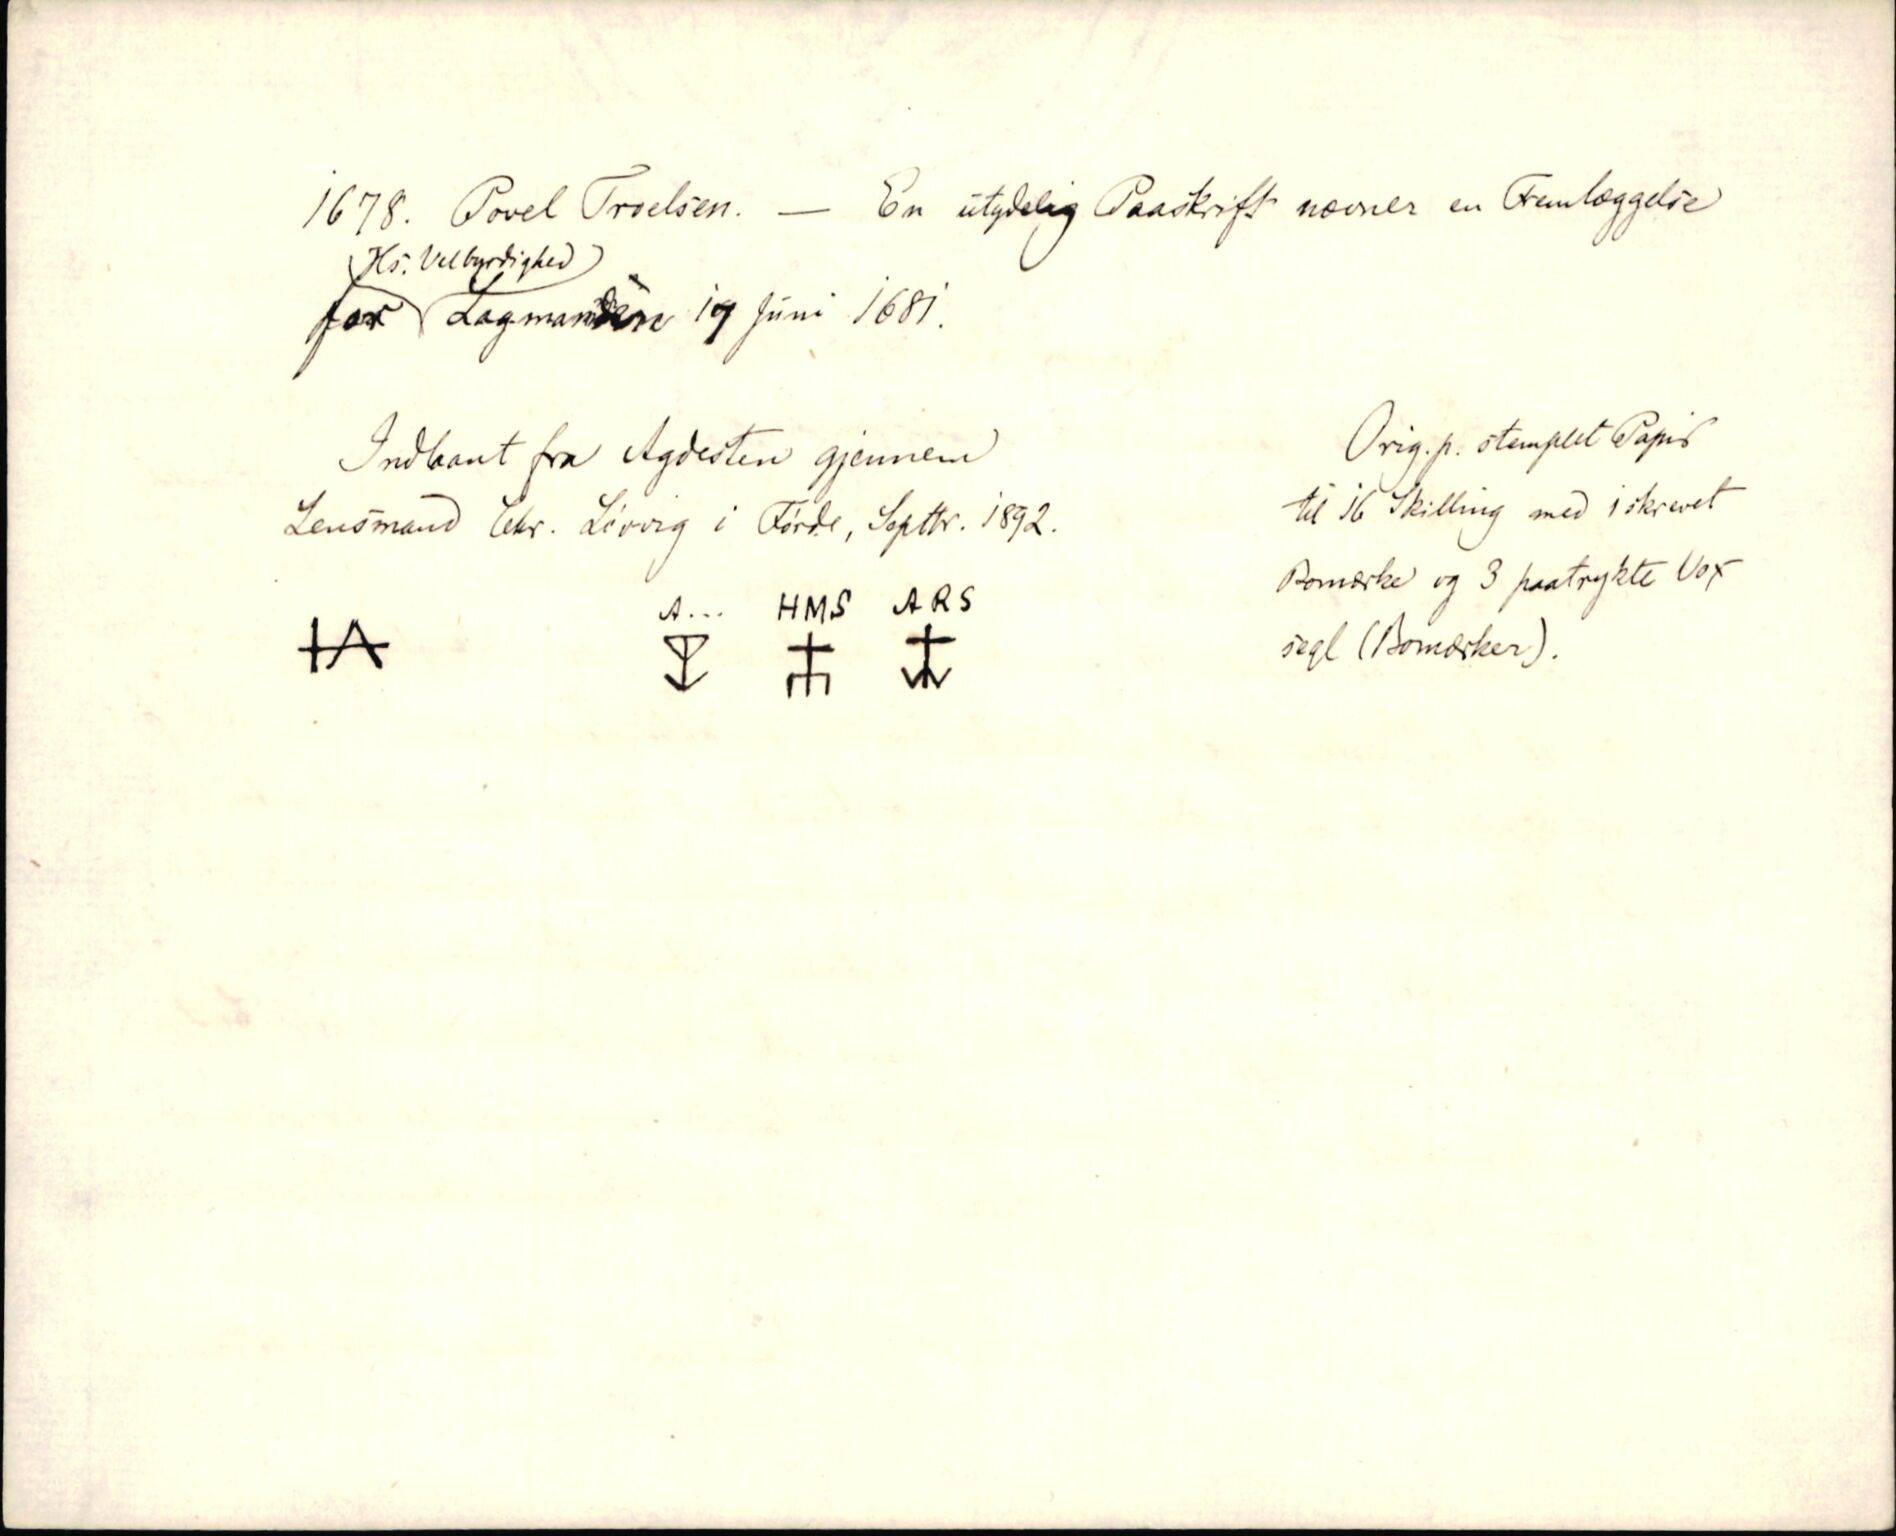 1678. Povel Troelsen. — En utydelig Paaskrift nævner en Fremlæggelse
Hs. Velbyrdighed
for Lagmanden 19 Juni 1681.
Indlaant fra Agdesten gjennem
Lensmand Chr. Lövvig i Förde, Septbr. 1892.
A... HMS ARS
Orig. p. stemplet Papir
til 16 Skilling med iskrevet
Bomærke og 3 paatrykte Vox
segl (Bomærker).